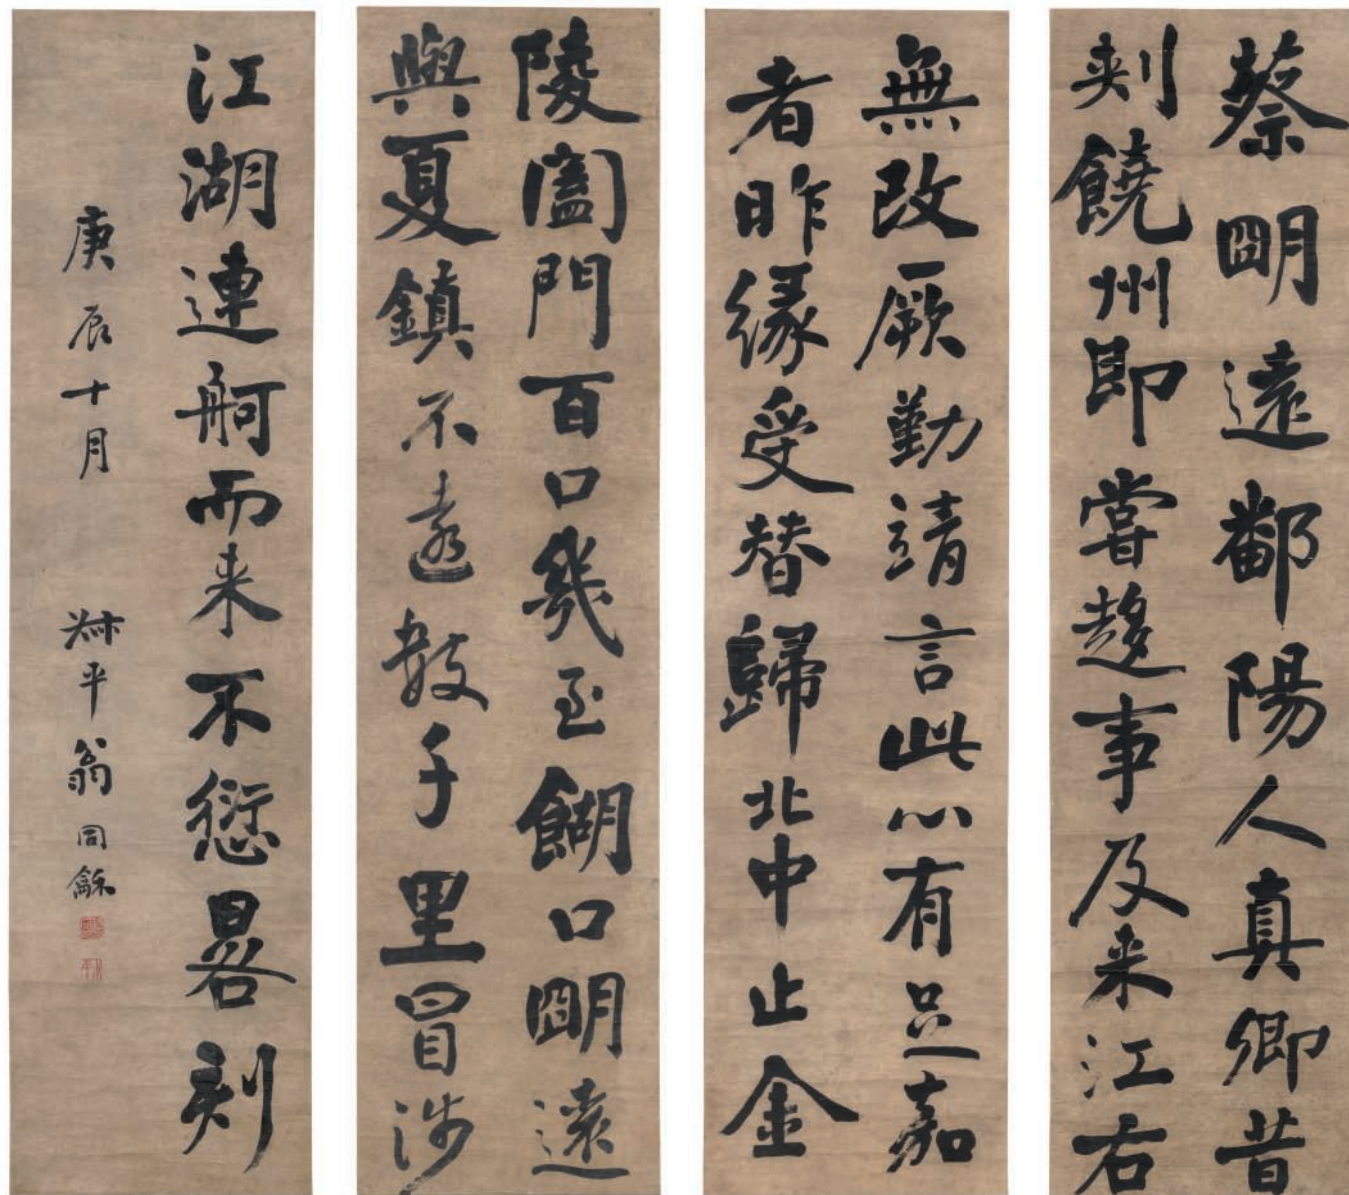 蔡明遠鄱陽人真卿昔
刾饒州即嘗趍事及来江右
無改厥勤靖言此心有足嘉
者昨縁受替歸北中止金
陵闔門百口幾至餬口明遠
與夏鎮不遠數千里冒涉
江湖連舸而来不愆晷刻
庚辰十月
叔平翁同龢